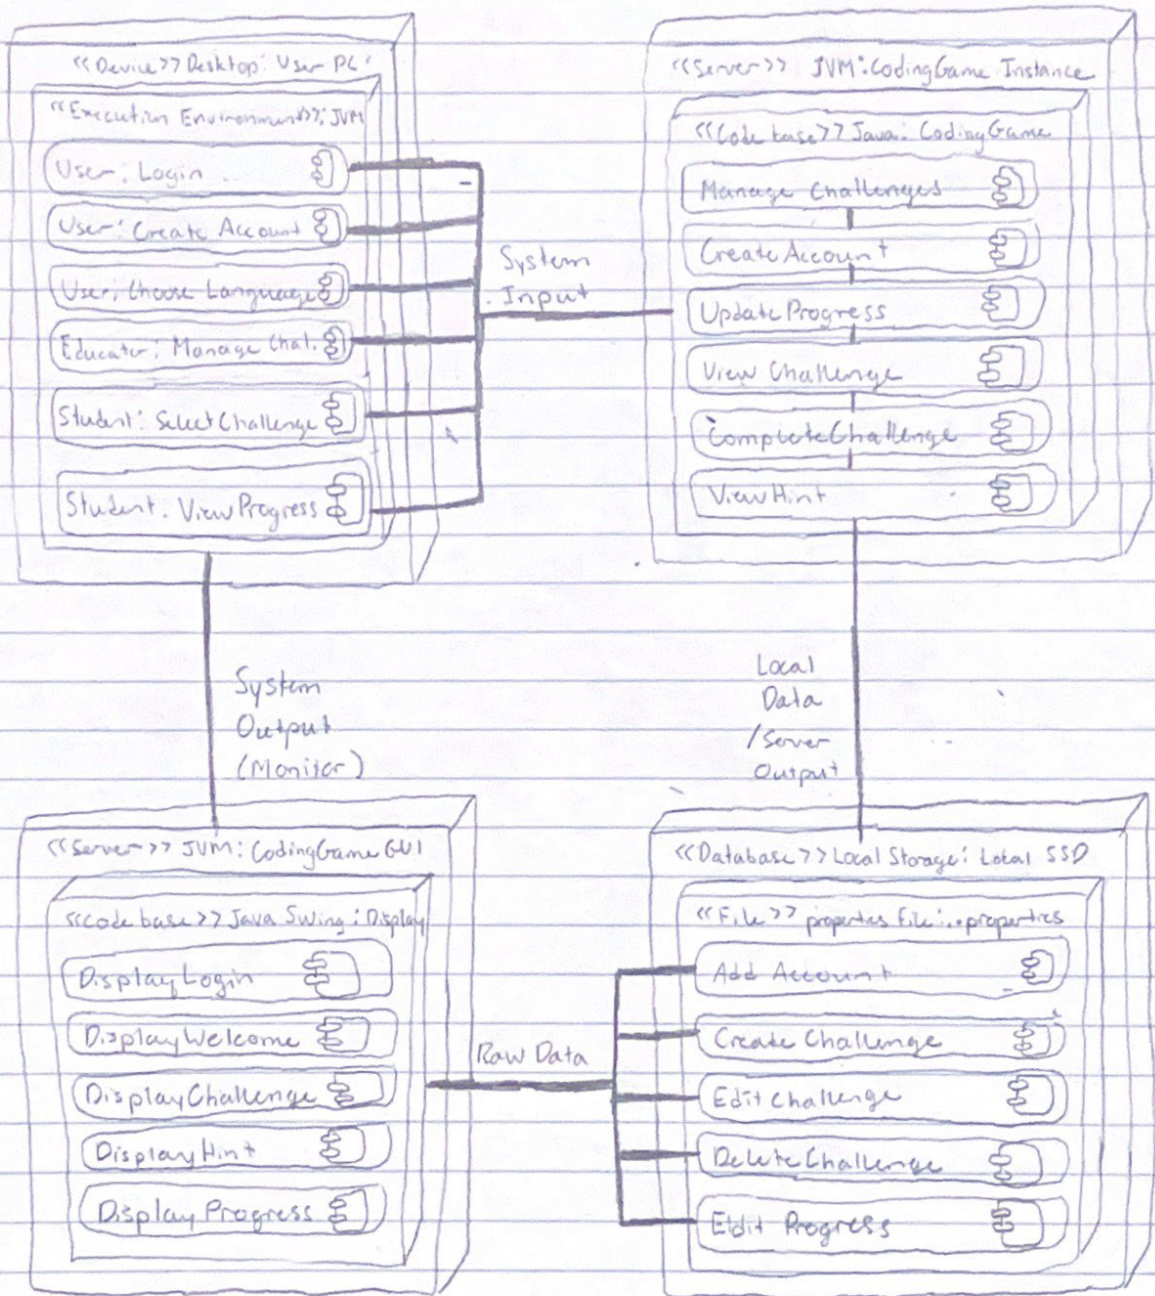 <<Device>> Desktop: User PC
<<Execution Environment>>: JVM
User: Login
User: Create Account
User: Choose Language
Educator: Manage Chal.
Student: Select Challenge
Student: View Progress
System
Input
<<Server>> JVM: CodingGame Instance
<<Code base>> Java: CodingGame
Manage Challenges
Create Account
Update Progress
View Challenge
Complete Challenge
View Hint
System
Output
(Monitor)
Local
Data
/Server
Output
<<Server>> JVM: CodingGame GUI
<<code base>> Java Swing: Display
Display Login
Display Welcome
Display Challenge
Display Hint
Display Progress
Raw Data
<<Database>> Local Storage: Local SSD
<<File>> properties file: .properties
Add Account
Create Challenge
Edit Challenge
Delete Challenge
Edit Progress